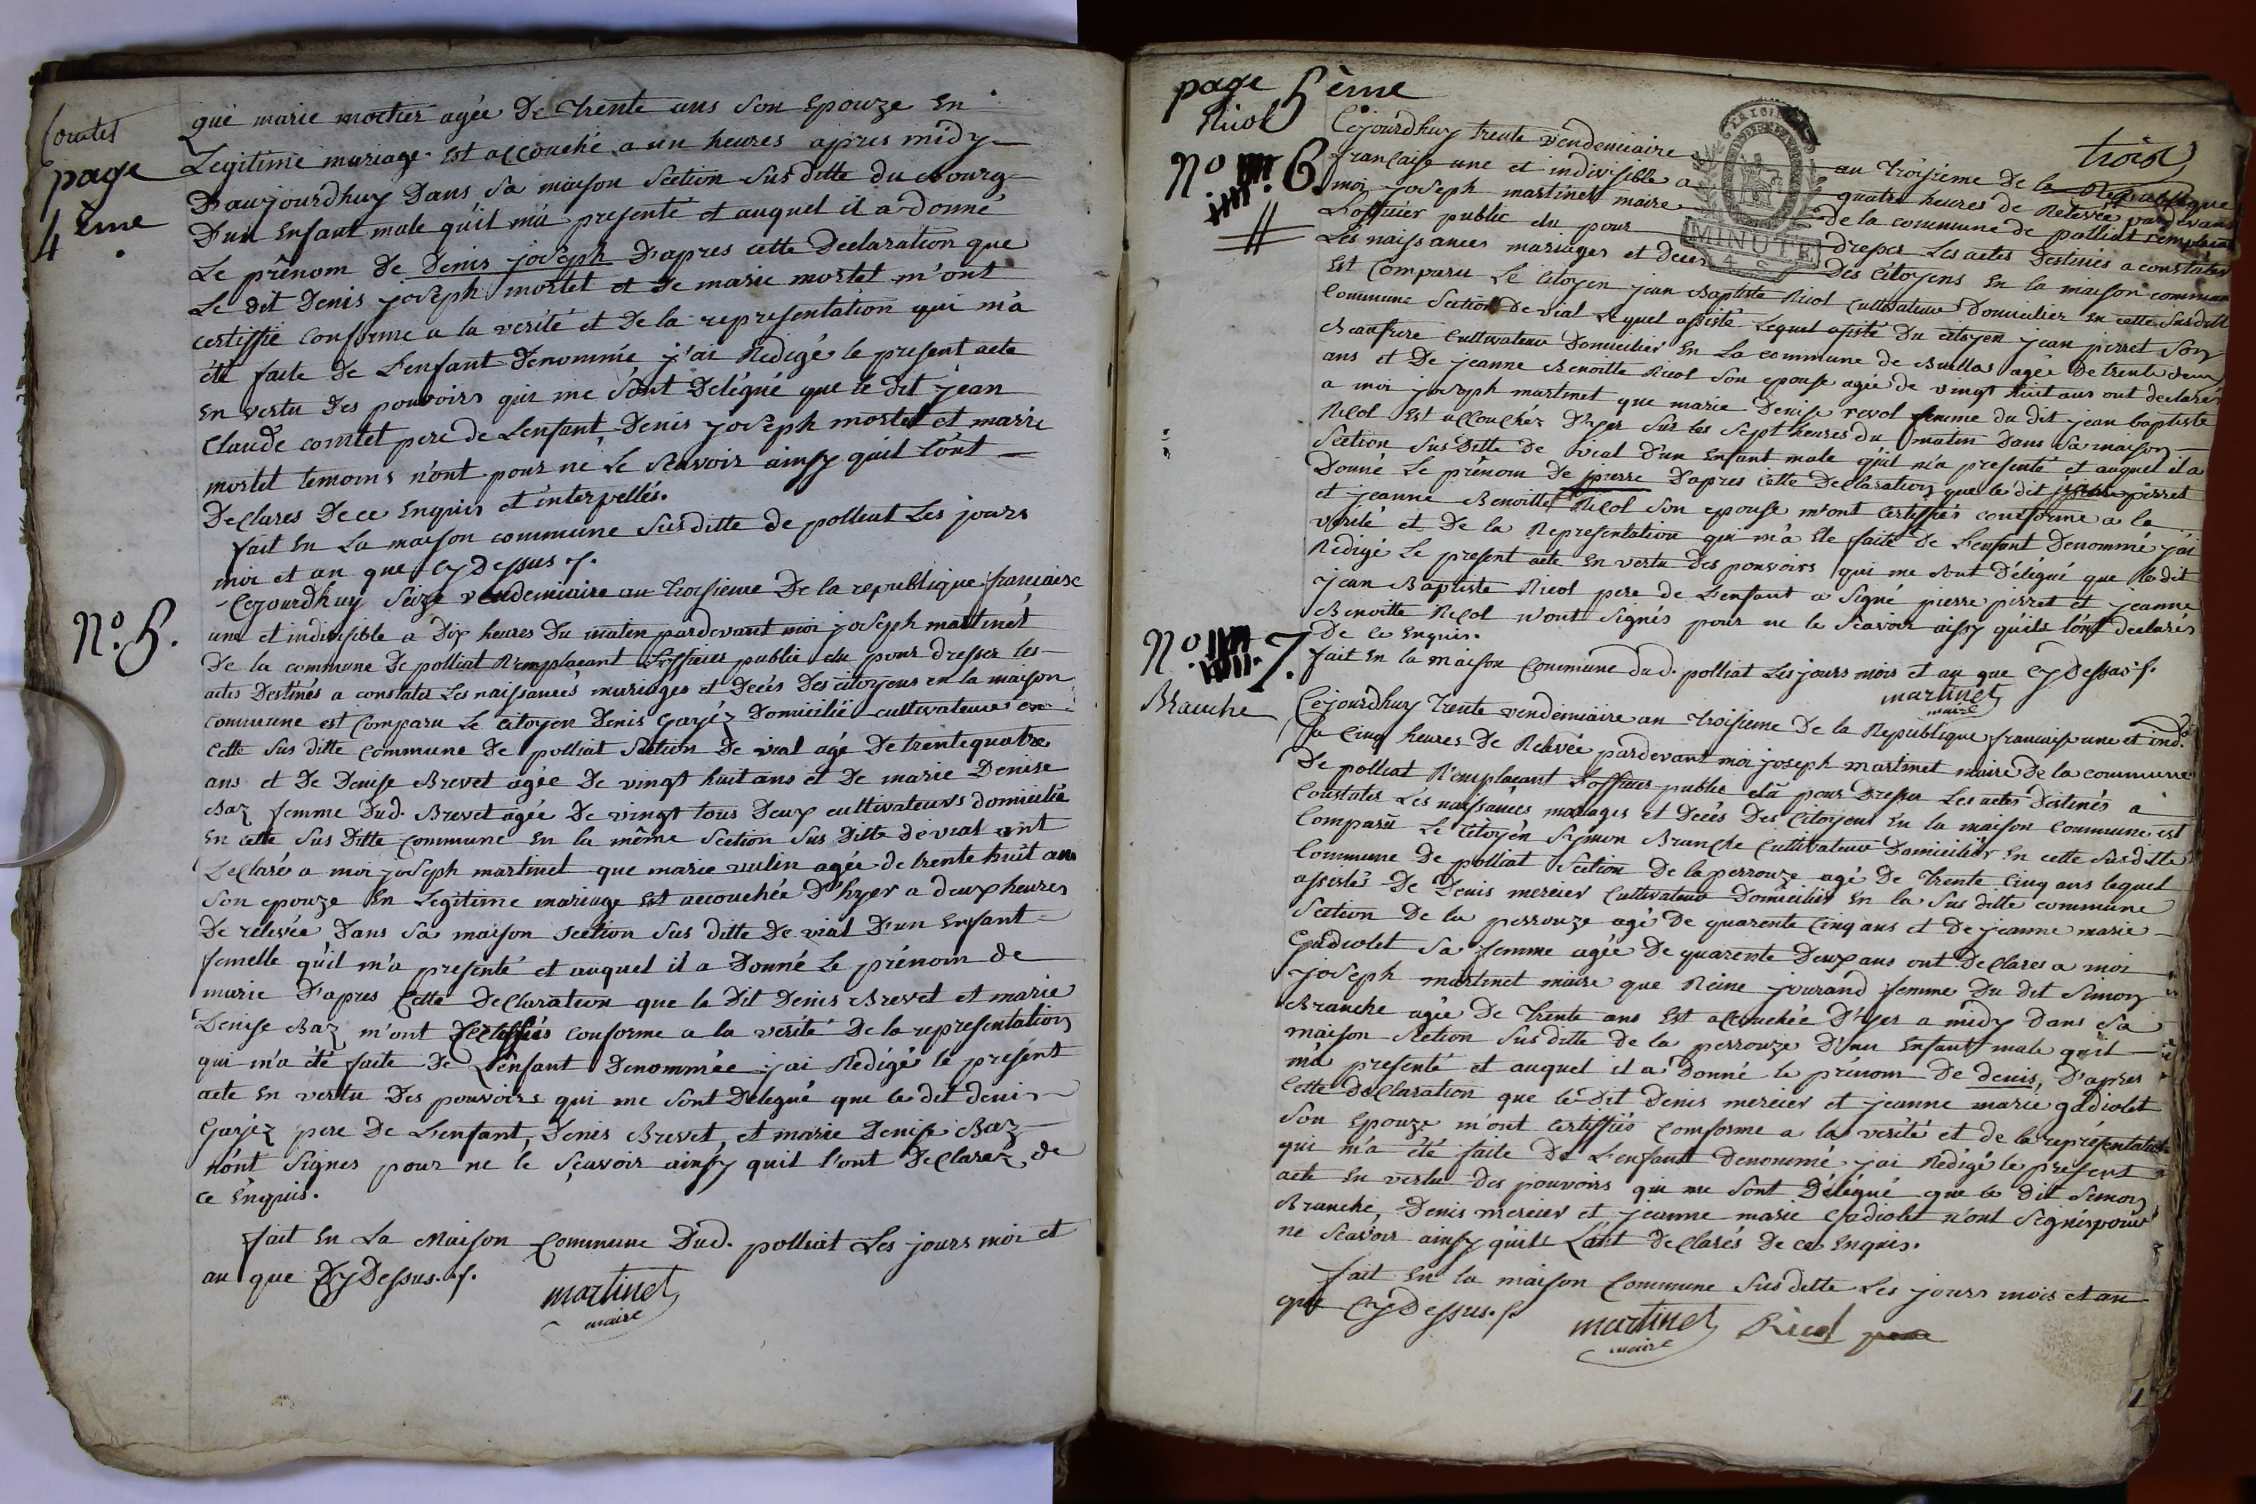 page
4 ème
que marie mortier agée De trente ans son Epouze En
Legitime mariage est accouché a un heures apres midy
D'aujourdhuy Dans sa maison Section susditte du Bourg
D'un Enfant male qu'il m'a presenté et auquel il a donné
Le prênom De Denis joseph D'apres cette Declaration que
Le dit Denis joseph mortet et De marie mortet m'ont
certiffié conforme a la verité et De la representation qui m'a
été faite De L'enfant Denommée j'ai Redigé le present acte
En vertu Des pouvoirs qui me sont Delégué que le dit jean
Claude comtet pere de L'enfant, Denis joseph mortet et marie
mortet temoins n'ont pour ne Le Scavoir ainsy quil l'ont
Declarés De ce Enquis et interpellés.
fait En La maison commune susditte de polliat Les jours
moi et an que cy Dessus ./.
No. 5.
Cejourdhuy Seize vendemiaire an troisieme De la republique francaise
une et indivisible a Dix heures Du matin pardevant moi joseph martinet
De la commune De polliat Remplacant L'officier public elu pour dresser les
actes Destinés a constater Les naissances mariages et Decés Des citoyens en la maison
commune est Comparu Le Citoyen Denis Gayéz Domicilié cultivateur en
cette sus ditte commune De polliat Section De vial agé De trente quatre
ans et De Denise Brevet agée De vingt huit ans et De marie Denise
Baz femme Dud. Brevet agée De vingt tous Deux cultivateurs domicilié
En cette sus Ditte commune En la même Section sus Ditte de vial ont
Declaré a moi joseph martinet que marie vulin agée de trente huit ans
son epouze En Legitime mariage Est accouchée D'hyer a deux heures
De relevée Dans sa maison section sus ditte De vial D'un Enfant
femelle qu'il m'a presenté et auquel il a Donné Le prénom de
marie D'apres Cette Declaration que le Dit Denis Brevet et marie
Denise Baz m'ont certiffiés conforme a la verité De la representation
qui m'a été faite De L'enfant Denommée j'ai Redigé le présent
acte En vertu Des pouvoirs qui me sont Delegué que le dit deni
Gayéz pere De L'enfant, Denis Brevet, et marie Denise Baz
n'ont Signes pour ne le sçavoir ainsy quil l'ont Declaréz de
ce Enquis.
fait En La Maison Commune Dud. polliat Les jours moi et
an que Cy Dessus ./.
martinet
maire
page 5 ème
Ricol
trois
No 6.
MINUTE
Cejourdhuy trente vendemiaire an troisieme De la Republique
francaise une et indivisible a quatre heures de Relevée pardevant
moi joseph martinet maire de la commune de polliat remplacant
L'officier public elu pour dresser Les actes Destinés a constater
Les naissances mariages et Decés Des Citoyens En la maison commune
Est Comparu Le Citoyen jean Baptiste Ricol Cultivateur Domicilier En cette susditte
Commune Section De vial Lequel assisté Lequel assisté Du citoyen jean pirret Son
Beaufrere Cultivateur Domicilier En La commune de Buellas agée De trente deux
ans et De jeanne Benoitte Ricol Son epouse agée de vingt huit ans ont declarés
a moi joseph martinet que marie Denise revol femme du dit jean baptiste
Ricol Est accouchéz D'hyer sur les sept heures du matin Dans sa maison
Section susDitte De vial D'un Enfant male qu'il m'a presenté et auquel il a
Donné Le prénom De pierre D'apres cette Declaration que le dit pirret
et jeanne Benoitte Ricol son epouse m'ont certiffiés conforme a la
verité et De la Representation qui m'a été faite De L'enfant Denommé j'ai
Rédigé Le present acte En vertu Des pouvoirs qui me sont Délegué que Le dit
jean Baptiste Ricol pere de L'enfant a Signé pierre pirret et jeanne
Benoitte Ricol n'ont Signés pour ne le Scavoir aissy qu'ils l'ont declarés
De ce Enquis.
fait En la Maison Commune Dud. polliat Les jours mois et an que Cy Dessus ./.
martinet
maire
No. 7.
Branche
Cejourdhuy trente vendemiaire an troisieme De la Republique francaise une et ind.
a Cinq heures De Relevée pardevant moi joseph martinet maire De la commune
De polliat Remplacant L'officier public elu pour Dresser Les actes Destinés a
Constater Les naissances mariages et Decés Des Citoyens En la maison Commune est
Comparu Le Citoyen Symon Branche Cultivateur Domicilier En cette susditte
Commune De polliat Section De la perrouze agé De trente Cinq ans lequel
assisté De Denis mercier Cultivateur Domicilier En la sus ditte commune
Section De la perrouze agé De quarente Cinq ans et De jeanne marie
Gadiolet sa femme agée De quarente Deux ans ont Declarés a moi
joseph martinet maire que Reine jourand femme Du dit Simon
Branche agée De trente ans Est accouchée D'hyer a midy Dans sa
maison Section susditte De la perrouze D'un Enfant male qu'il
m'a presenté et auquel il a Donné le prénom De denis, D'apres
Cette Declaration que le Dit Denis mercier et jeanne marie gadiolet
Son Epouze m'ont certiffiés Comforme a la verité et de la representation
qui m'a été faite De L'enfant Denommé j'ai Rédigé le present
acte En vertu Des pouvoirs qui me Sont Délégué que le dit Simon
Branche, Denis mercier et jeanne marie Gadiolet n'ont Signés pour
ne Scavoir ainsy qu'ils L'ont Declarés De ce Enquis.
fait En la maison Commune Susditte Les jours mois et an
que Cy Dessus ./.
martinet
maire
Ricol